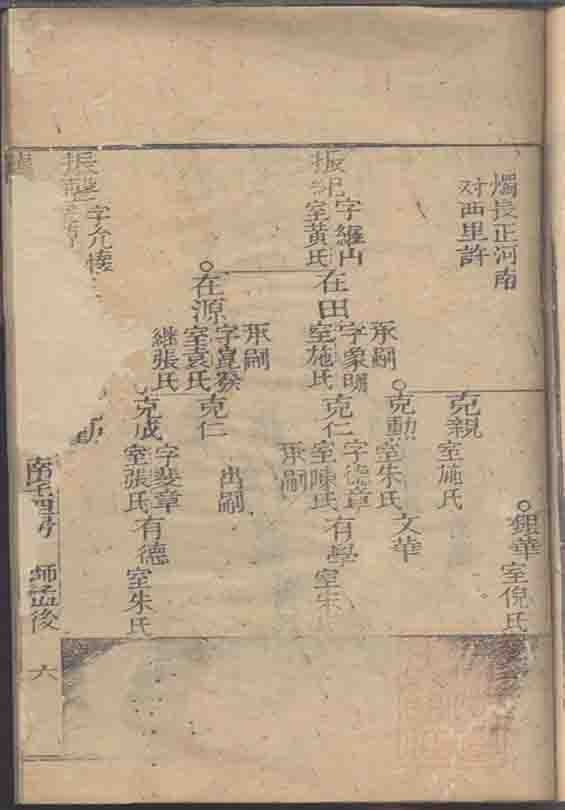 燭長正河南
对西里許
克親
室施氏
銀華
室倪氏
振紀
字羅山
室黃氏
在田
承嗣
字象明
室施氏
克勲
室朱氏
文華
克仁
字德章
室陳氏
承嗣
有學
室朱
在源
承嗣
室袁氏
継張氏
克仁
出嗣
克成
字斐章
室張氏
有德
室朱氏
振聲
字允
師孟後
六